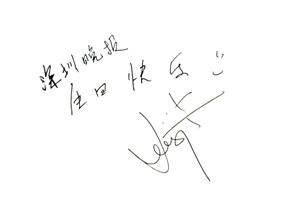 深圳晚报
生日快乐